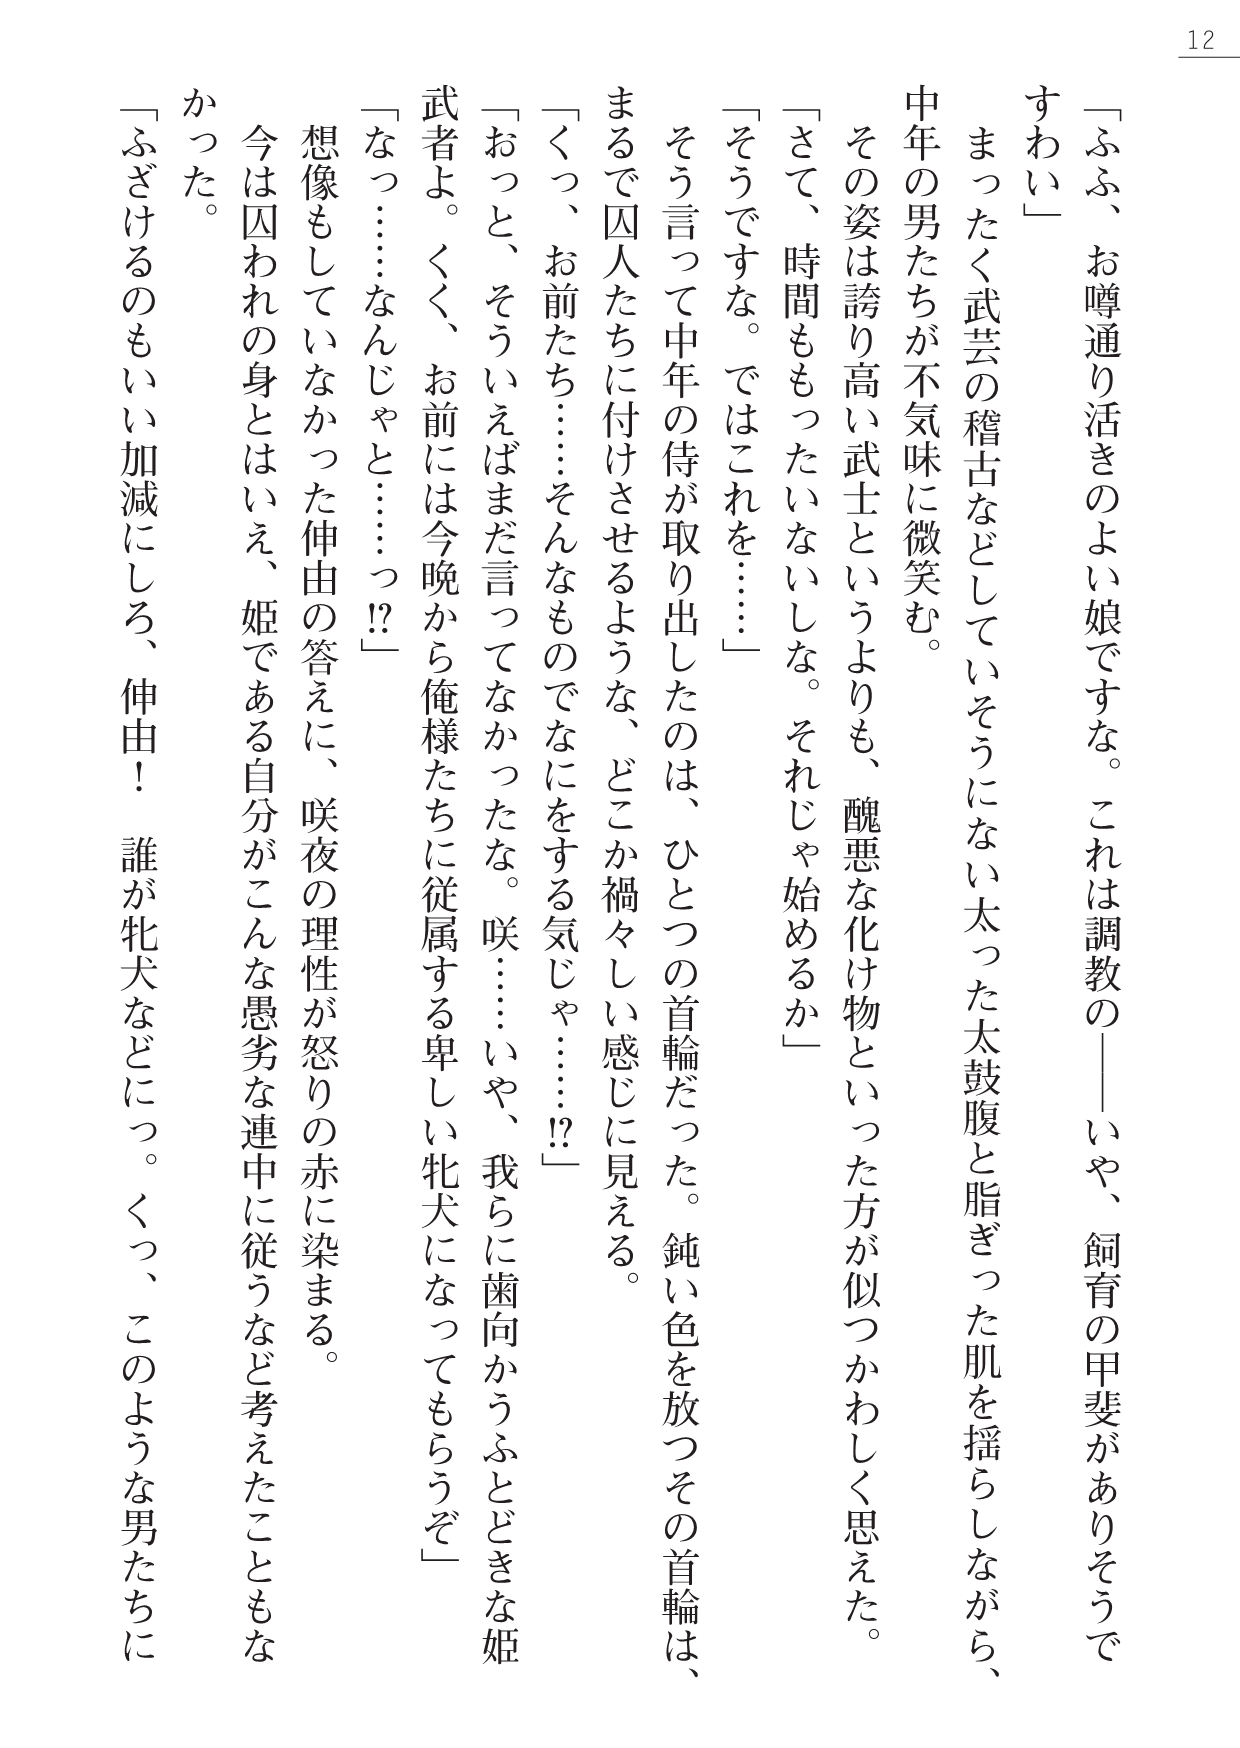 12
「ふふ、お噂通り活きのよい娘ですな。これは調教の――いや、飼育の甲斐がありそうで
すわい」
　まったく武芸の稽古などしていそうにない太った太鼓腹と脂ぎった肌を揺らしながら、
中年の男たちが不気味に微笑む。
　その姿は誇り高い武士というよりも、醜悪な化け物といった方が似つかわしく思えた。
「さて、時間ももったいないしな。それじゃ始めるか」
「そうですな。ではこれを……」
　そう言って中年の侍が取り出したのは、ひとつの首輪だった。鈍い色を放つその首輪は、
まるで囚人たちに付けさせるような、どこか禍々しい感じに見える。
「くっ、お前たち……そんなものでなにをする気じゃ……!?」
「おっと、そういえばまだ言ってなかったな。咲……いや、我らに歯向かうふとどきな姫
武者よ。くく、お前には今晩から俺様たちに従属する卑しい牝犬になってもらうぞ」
「なっ……なんじゃと……っ!?」
　想像もしていなかった伸由の答えに、咲夜の理性が怒りの赤に染まる。
　今は囚われの身とはいえ、姫である自分がこんな愚劣な連中に従うなど考えたこともな
かった。
「ふざけるのもいい加減にしろ、伸由！　誰が牝犬などにっ。くっ、このような男たちに